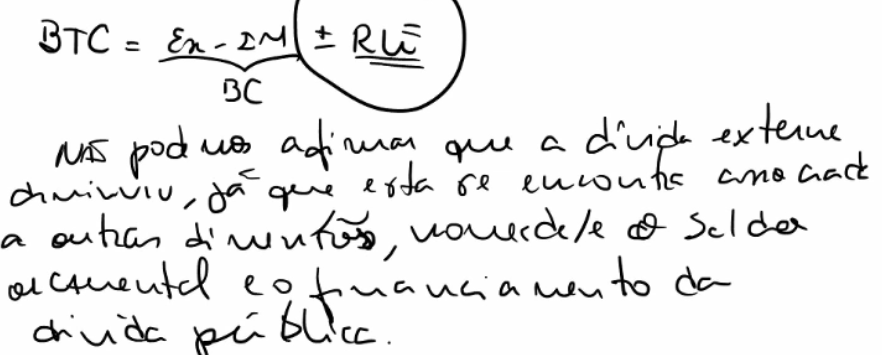 BTC = Ex - IM ± RLE
BC
Não podemos afirmar que a dívida externa
diminuiu, já que esta se encontra associada
a outras dimensões, nomeadamente o Saldo
orçamental e o financiamento da
dívida pública.